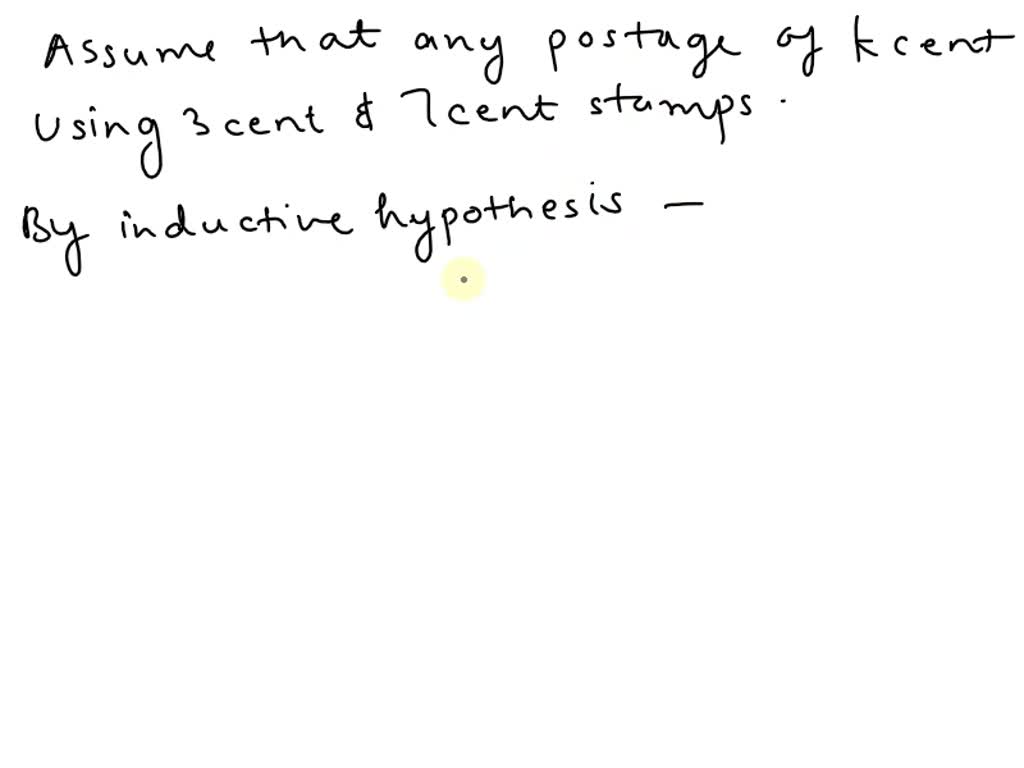 Assume that any postage of k cent
Using 3 cent & 7 cent stamps.
By inductive hypothesis —